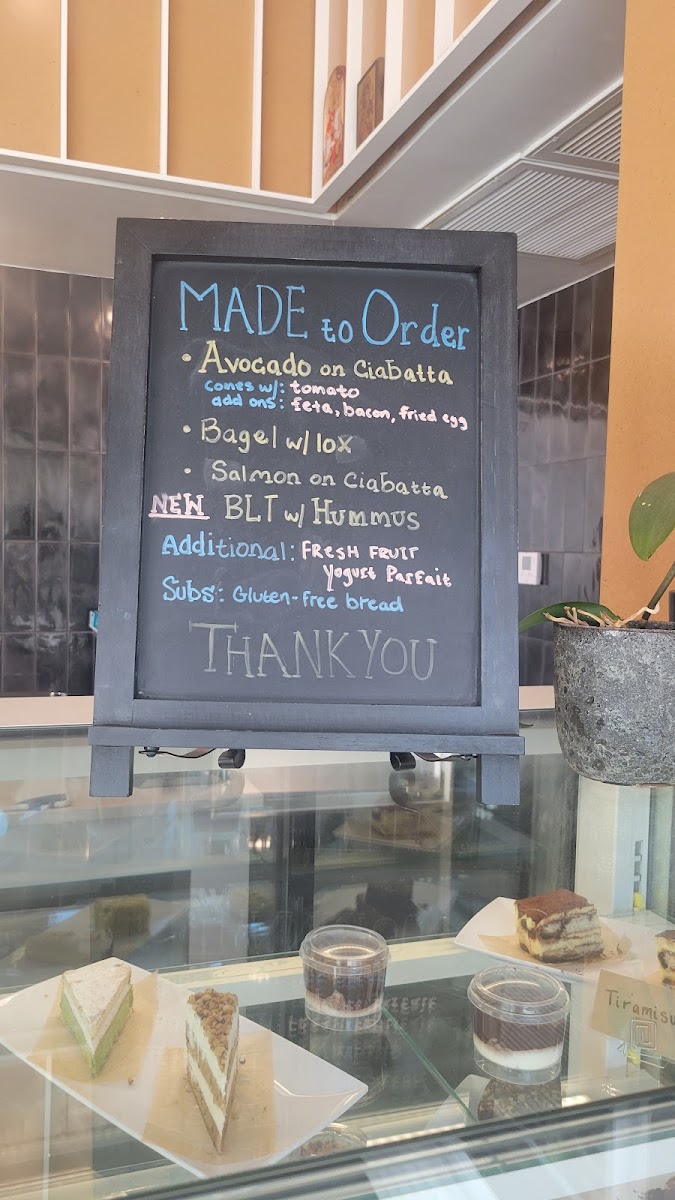 MADE to Order
• Avocado on Ciabatta
comes w/: tomato
add ons: feta, bacon, fried egg
• Bagel w/ lox
• Salmon on Ciabatta
NEW BLT w/ Hummus
Additional: FRESH FRUIT
Yogurt Parfait
Subs: Gluten-free bread
THANK YOU
Tiramisu